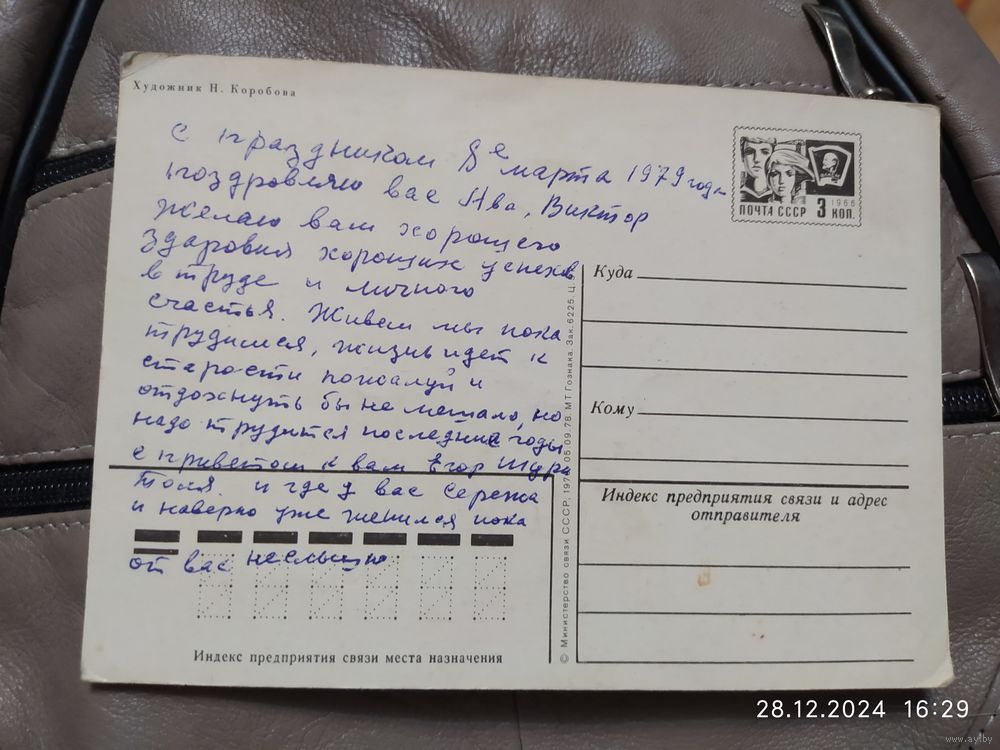 Художник Н. Коробова
с праздником 8е марта 1979 года
поздровляю вас Ява, Виктор
желаю вам хорошего
здаровия хороших успехов
в труде и личного
счастья. Живем мы пока
трудимся, жизнь идет к
старости пожалуй и
отдохнуть бы не мешало, но
надо трудится последние годы
с приветом к вам Егор Шура
Толя. и где у вас Сережа
и наверно уже женился пока
от вас неслышно
ПОЧТА СССР 3 КОП.
1966
Куда
Кому
Индекс предприятия связи и адрес
отправителя
© Министерство связи СССР, 1978. 05.09.78. МТ Гознака. Зак. 6225. Ц.
Индекс предприятия связи места назначения
28.12.2024 16:29
www.ay.by